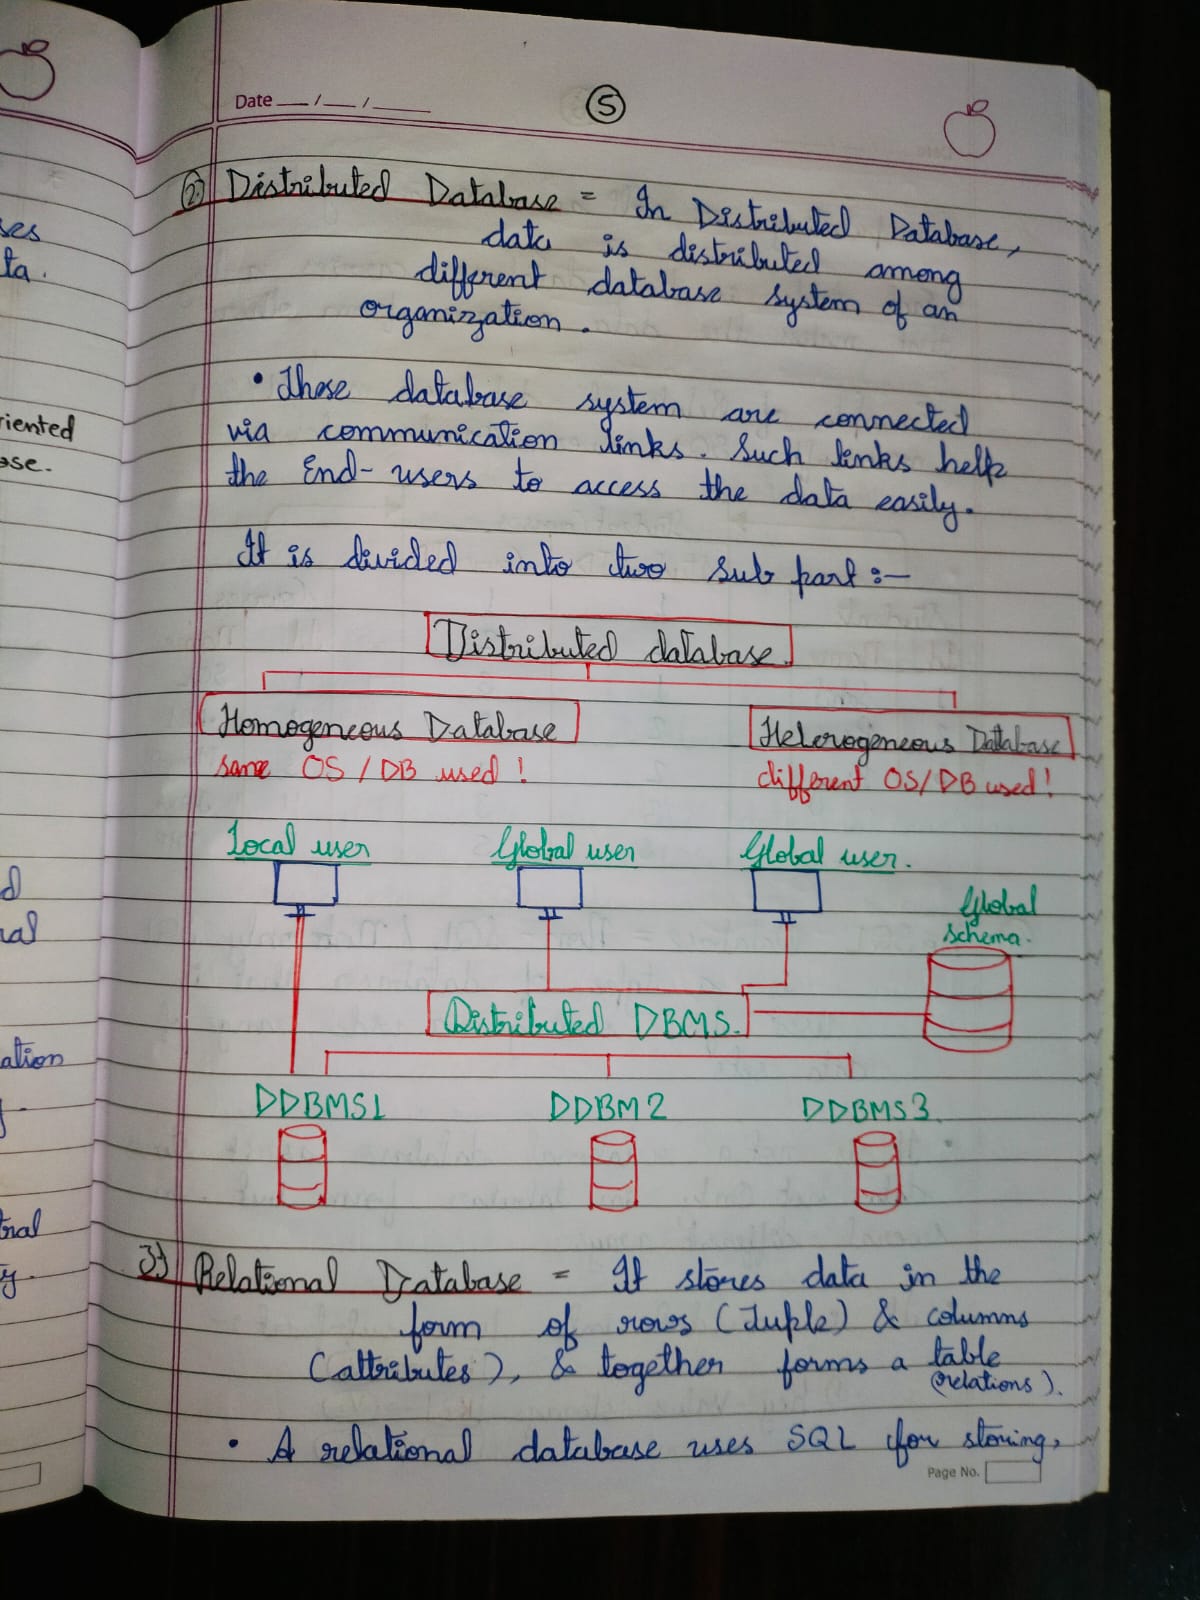 ses
ta.
riented
ase.
d
nal
ation
tral
y.
Date __/__/____
5
2) Distributed Database = In Distributed Database,
data is distributed among
different database system of an
organization.
• These database system are connected
via communication links. Such links help
the End-users to access the data easily.
It is divided into two sub part :-
Distributed database.
Homogeneous Database
Heterogeneous Database
same OS/DB used!
different OS/DB used!
Local user
Global user
Global user.
Global
schema.
Distributed DBMS.
DDBMS1
DDBM2
DDBMS3.
3) Relational Database = It stores data in the
form of rows (Tuple) & columns
(attributes), & together forms a table
(relations).
• A relational database uses SQL for storing,
Page No.